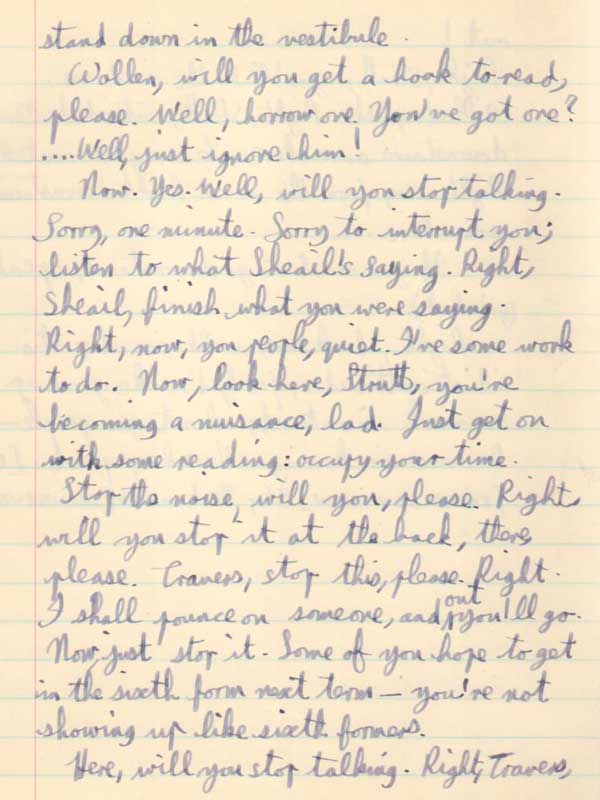 stand down in the vestibule.
Wollen, will you get a book to read,
please. Well, borrow one. You've got one?
....Well, just ignore him!
Now. Yes. Well, will you stop talking.
Sorry, one minute. Sorry to interrupt you;
listen to what Sheail's saying. Right,
Sheail, finish what you were saying.
Right, now, you people, quiet. I've some work
to do. Now, look here, Strutt, you're
becoming a nuisance, lad. Just get on
with some reading: occupy your time.
Stop the noise, will you, please. Right,
will you stop it at the back, there,
please. Travers, stop this, please. Right.
I shall pounce on someone, and out you'll go.
Now, just stop it. Some of you hope to get
in the sixth form next term — you're not
showing up like sixth formers.
Here, will you stop talking. Right, Travers,